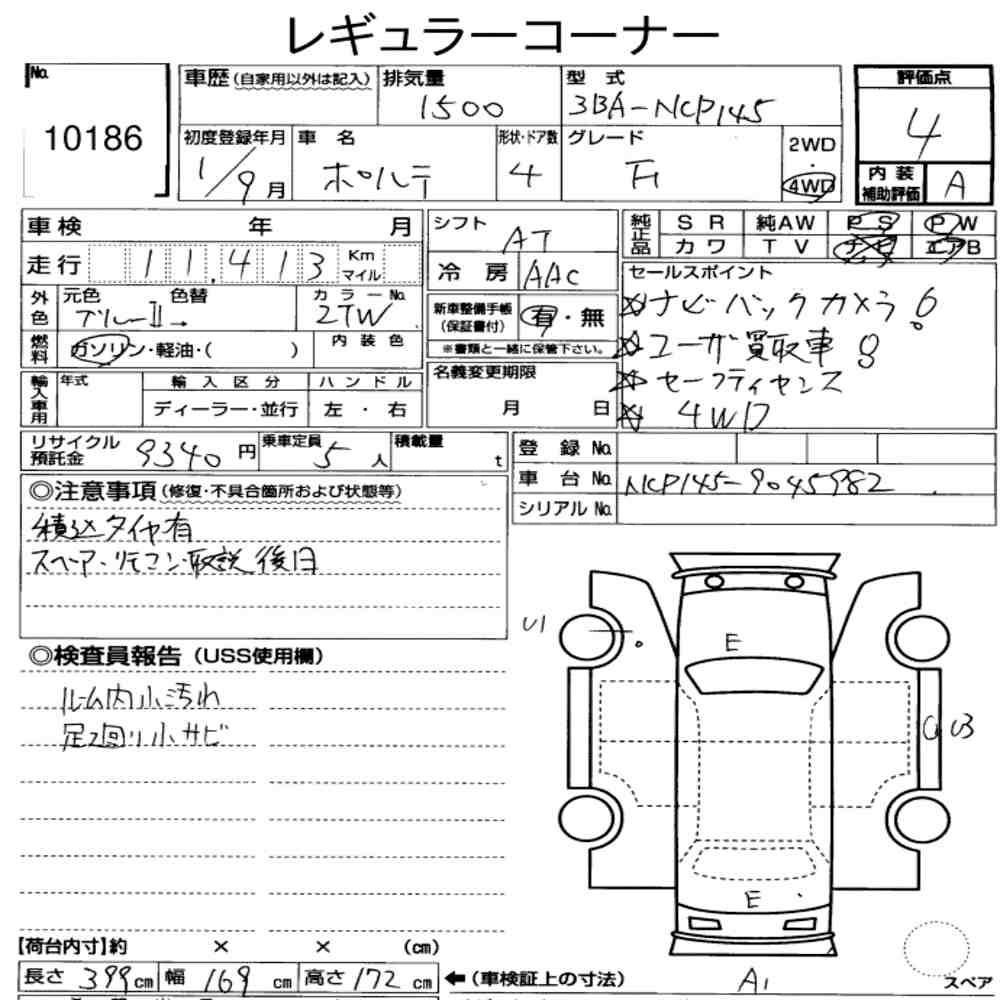 レギュラーコーナー
No.
10186
車歴(自家用以外は記入)
排気量
1500
型 式
3BA-NCP145
評価点
4
初度登録年月
1/9月
車 名
ポルテ
形状・ドア数
4
グレード
F
2WD
・
4WD
内装補助評価
A
車検 年 月
シフト
AT
純正品
SR 純AW PS PW
カワ TV ナビ エアB
走行 11,413 Km マイル
冷房
AAC
セールスポイント
☆ナビバックカメラ!
☆ユーザ買取車!!
☆セーフティセンス
☆4WD
外色
元色 色替
ブルーII→
カラーNo.
2TW
新車整備手帳
(保証書付)
有・無
※書類と一緒に保管下さい。
燃料
ガソリン・軽油・( )
内装色
輸入車用
年式
輸入区分
ハンドル
ディーラー・並行
左・右
名義変更期限
月 日
リサイクル預託金
9340円
乗車定員
5人
積載量
t
登録No.
車台No.
NCP145-9045982
シリアルNo.
◎注意事項(修復・不具合箇所および状態等)
積込タイヤ有
スペア・リモコン・取説後日
◎検査員報告(USS使用欄)
ルーム内小汚れ
足廻り小サビ
U1
E
U3
E
A1
スペア
【荷台内寸】約 × × (cm)
長さ399cm 幅169cm 高さ172cm
←(車検証上の寸法)